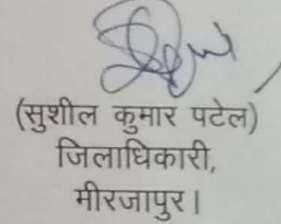 (सुशील कुमार पटेल)
जिलाधिकारी,
मीरजापुर।